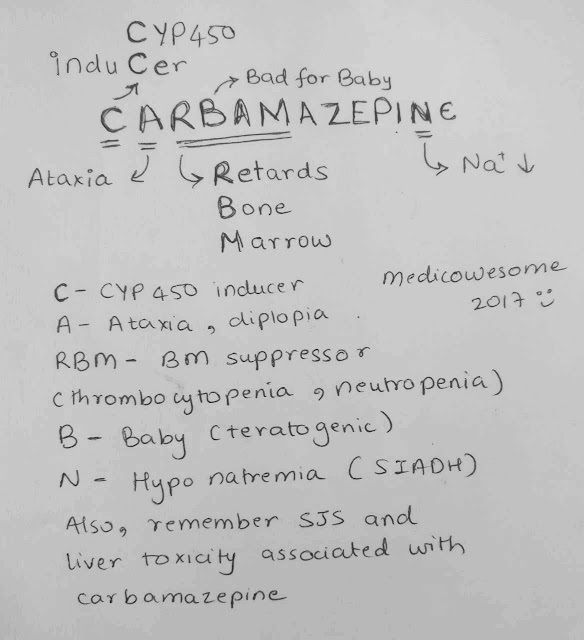 CYP450
inducer
Bad for Baby
CARBAMAZEPINE
Ataxia
Retards
Na⁺ ↓
Bone
Marrow
C - CYP 450 inducer
medicowesome
2017
A - Ataxia, diplopia.
RBM - BM suppressor
(thrombocytopenia, neutropenia)
B - Baby (teratogenic)
N - Hypo natremia (SIADH)
Also, remember SJS and
liver toxicity associated with
carbamazepine